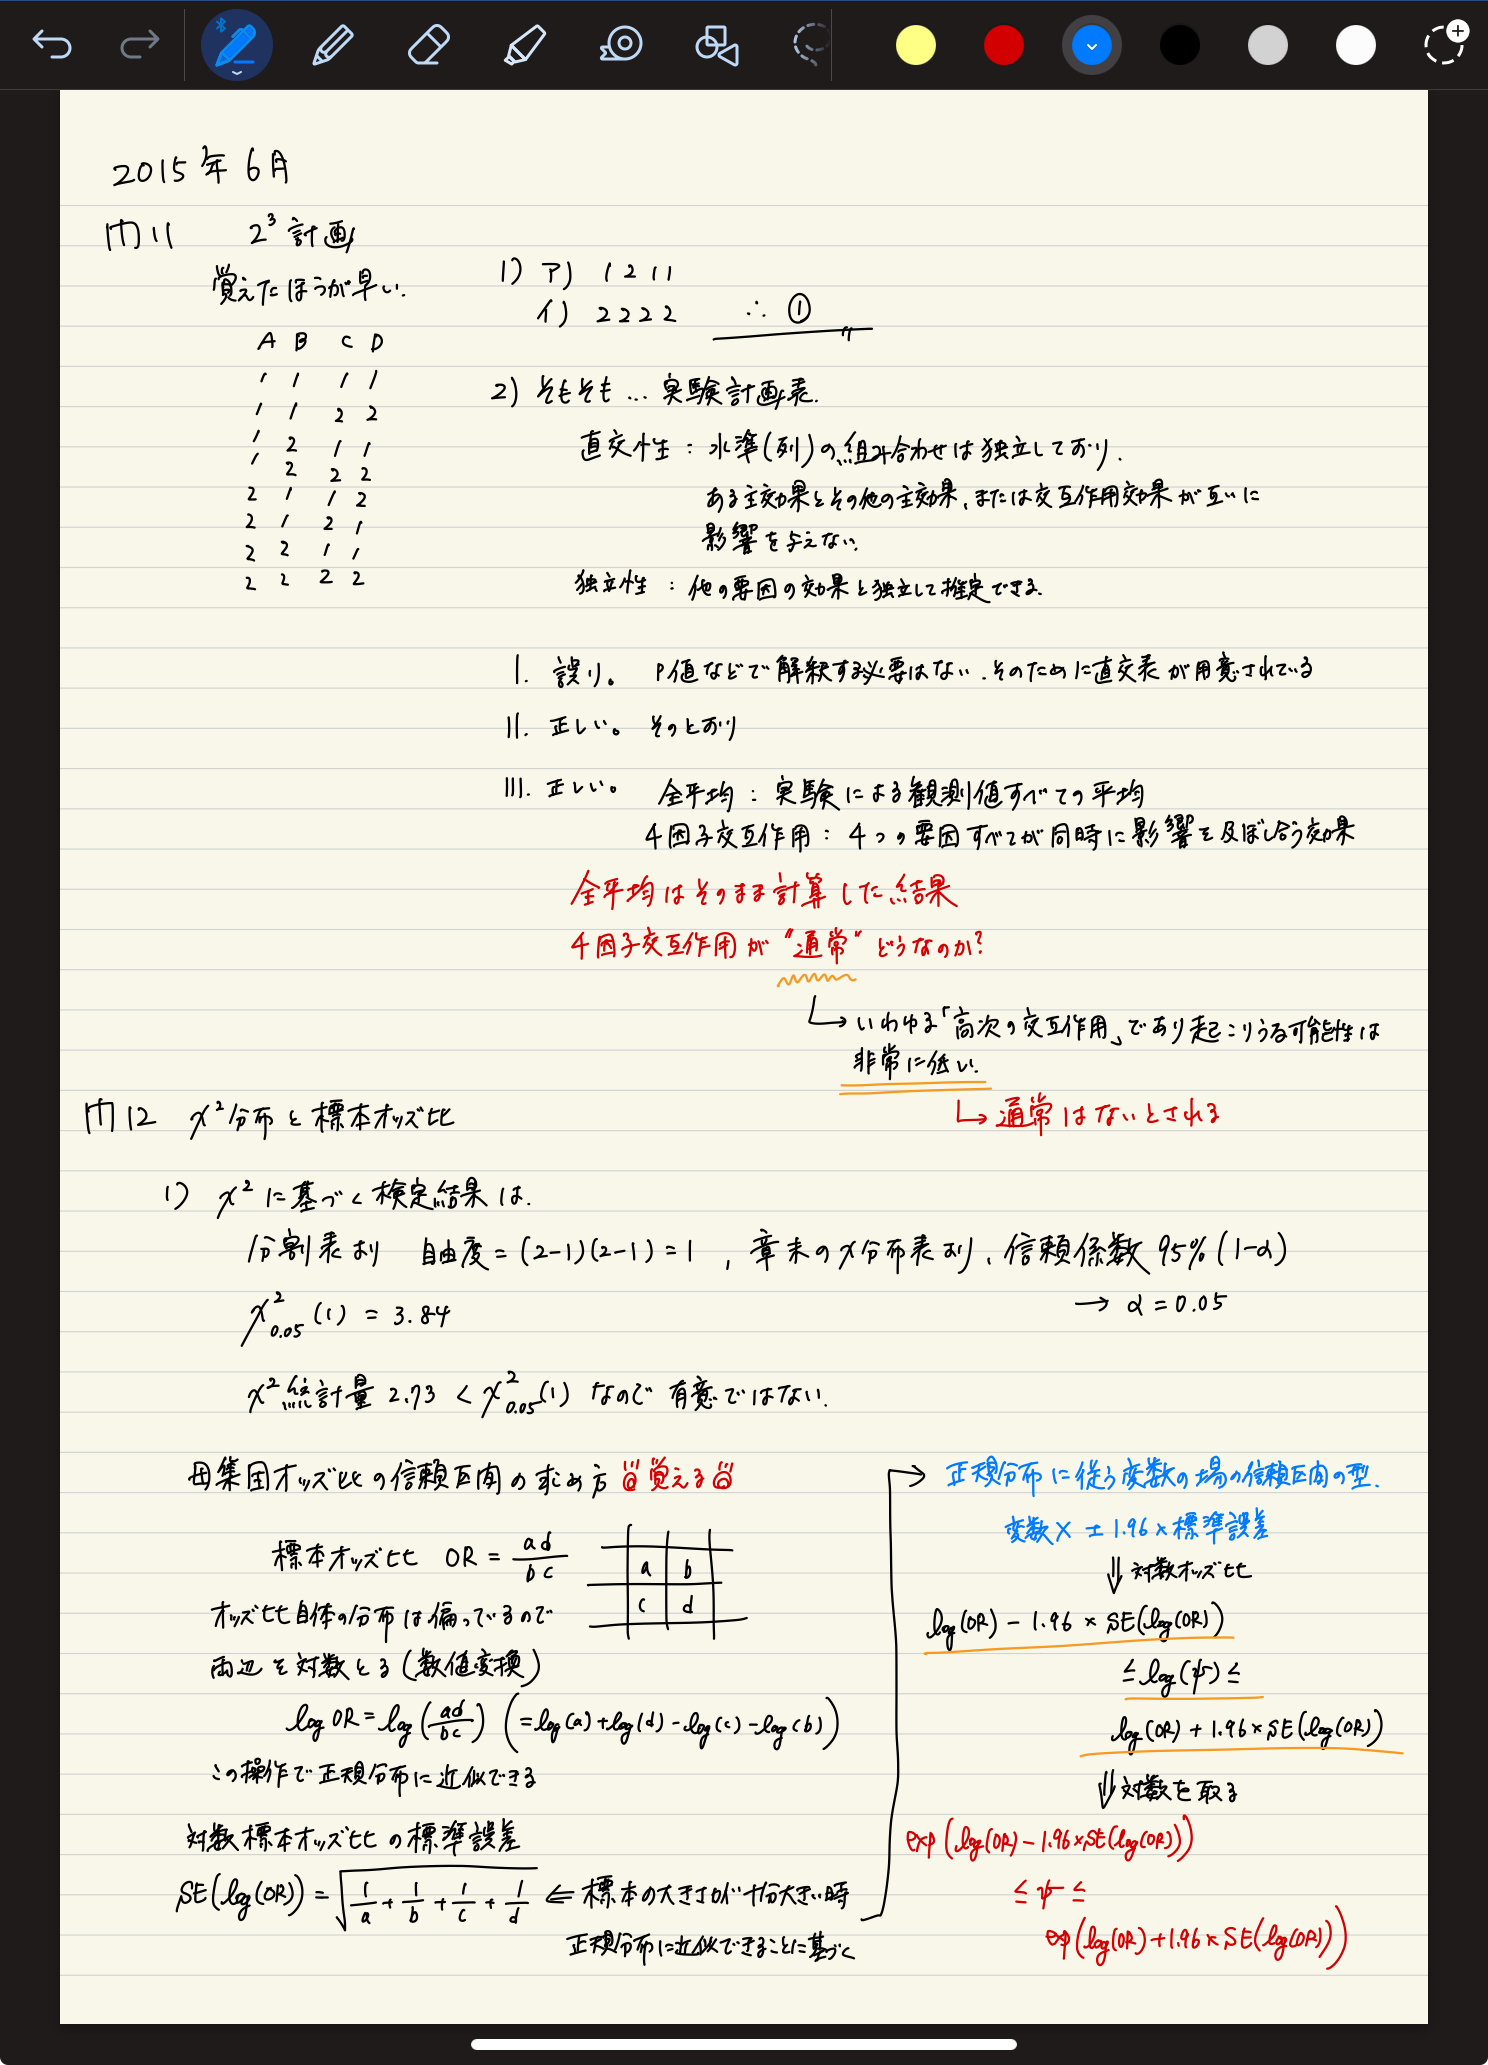 2015年6月
問11 2³計画
覚えたほうが早い.
A B C D
1 1 1 1
1 1 2 2
1 2 1 1
1 2 2 2
2 1 1 2
2 1 2 1
2 2 1 1
2 2 2 2
1) ア) 1 2 1 1
イ) 2 2 2 2 ∴ ①
2) そもそも…実験計画表.
直交性:水準(列)の組み合わせは独立しており.
ある主効果とその他の主効果、または交互作用効果が互いに
影響を与えない.
独立性:他の要因の効果と独立して推定できる.
I. 誤り。 P値などで解釈する必要はない.そのために直交表が用意されている
II. 正しい。 そのとおり
III. 正しい。 全平均:実験による観測値すべての平均
4因子交互作用:4つの要因すべてが同時に影響を及ぼし合う効果
全平均はそのまま計算した結果
4因子交互作用が"通常"どうなのか?
↳いわゆる「高次の交互作用」であり起こりうる可能性は
非常に低い.
↳通常はないとされる
問12 χ²分布と標本オッズ比
1) χ²に基づく検定結果は.
分割表より 自由度=(2-1)(2-1)=1 , 章末のχ分布表より、信頼係数95%(1-α)
→ α=0.05
χ²0.05(1) = 3.84
χ²統計量 2.73 < χ²0.05(1) なので有意ではない.
母集団オッズ比の信頼区間の求め方 覚える
標本オッズ比 OR = ad/bc
a b
c d
オッズ比自体の分布は偏っているので
両辺を対数とる(数値変換)
log OR = log(ad/bc) (= log(a)+log(d)-log(c)-log(b))
この操作で正規分布に近似できる
対数標本オッズ比の標準誤差
SE(log(OR)) = √(1/a + 1/b + 1/c + 1/d) ⇐ 標本の大きさが十分大きい時
正規分布に近似できることに基づく
→ 正規分布に従う変数の場の信頼区間の型.
変数X ± 1.96×標準誤差
⇓ 対数オッズ比
log(OR) - 1.96 × SE(log(OR))
≤ log(ψ) ≤
log(OR) + 1.96×SE(log(OR))
⇓ 対数を取る
exp(log(OR) - 1.96×SE(log(OR)))
≤ ψ ≤
exp(log(OR)+1.96×SE(log(OR)))